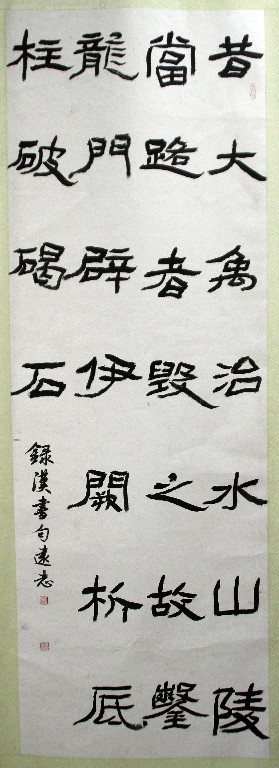 昔大禹治水山陵
當路者毀之故鑿
龍門辟伊闕析厎
柱破碣石
錄漢書句遠志